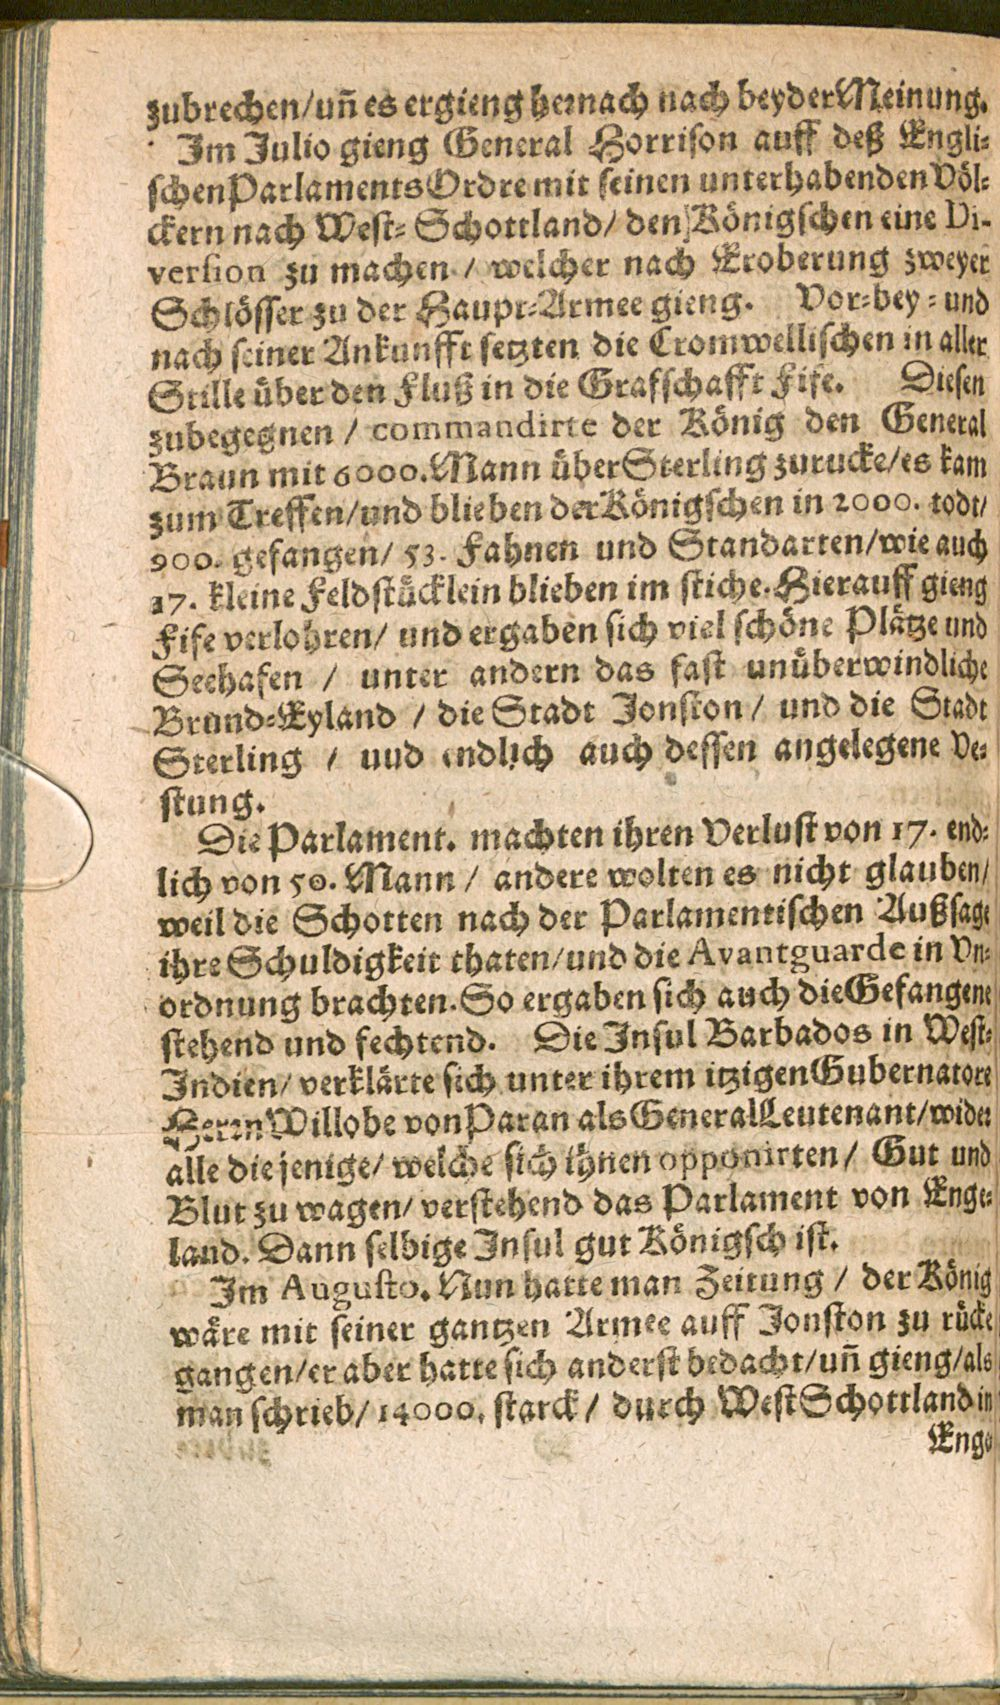 zubrechen/uñ es ergieng hernach nach beyder Meinung.
Im Julio gieng General Horrison auff deß Engli-
schen Parlaments Ordre mit seinen unterhabenden Völ-
ckern nach West-Schottland/ den Königschen eine Di-
version zu machen / welcher nach Eroberung zweyer
Schlösser zu der Haupt-Armee gieng. Vor-bey- und
nach seiner Ankunfft setzten die Cromwellischen in aller
Stille über den Fluß in die Grafschafft Fife. Diesen
zubegegnen / commandirte der König den General
Braun mit 6000. Mann über Sterling zurucke/es kam
zum Treffen/und blieben der Königschen in 2000. todt/
900. gefangen/ 53. Fahnen und Standarten/wie auch
17. kleine Feldstücklein blieben im stiche. Hierauff gieng
Fife verlohren/ und ergaben sich viel schöne Plätze und
Seehafen / unter andern das fast unüberwindliche
Brund-Eyland / die Stadt Jonston/ und die Stadt
Sterling / uud endlich auch dessen angelegene Ve-
stung.
Die Parlament. machten ihren Verlust von 17. end-
lich von 50. Mann / andere wolten es nicht glauben/
weil die Schotten nach der Parlamentischen Außsage
ihre Schuldigkeit thaten/und die Avantguarde in Vn-
ordnung brachten. So ergaben sich auch die Gefangene
stehend und fechtend. Die Insul Barbados in West-
Indien/ verklärte sich unter ihrem itzigen Gubernatore
Herrn Willobe von Paran als General Leutenant/wider
alle diejenige/ welche sich ihnen opponirten/ Gut und
Blut zu wagen/ verstehend das Parlament von Enge-
land. Dann selbige Insul gut Königsch ist.
Im Augusto. Nun hatte man Zeitung / der König
wäre mit seiner gantzen Armee auff Jonston zu rücke
gangen/er aber hatte sich anderst bedacht/uñ gieng/als
man schrieb/ 14000. starck/ durch West Schottland in
Enge